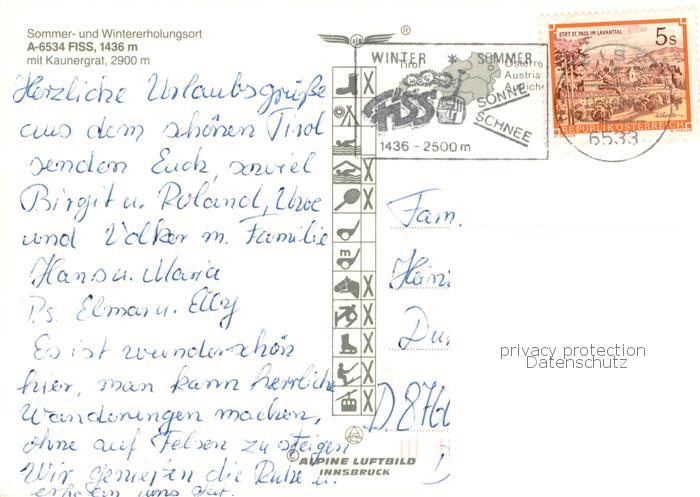 Sommer- und Wintererholungsort
A-6534 FISS, 1436 m
mit Kaunergrat, 2900 m
Herzliche Urlaubsgrüße
aus dem schönen Tirol
senden Euch, soviel
Birgit u. Roland, Uwe
und Volker m. Familie
Hans u. Maria
Ps. Elmar u. Elly
Es ist wunderschön
hier, man kann herrliche
Wanderungen machen,
ohne auf Felsen zu steigen
Wir genießen die Ruhe u.
erholen uns gut.
®
WINTER SOMMER
Tirol
Österre
Austria
Autriche
FISS
SONNE
SCHNEE
1436 - 2500 m
STIFT ST. PAUL IM LAVANTTAL
5 S
REPUBLIK ÖSTERREICH
6533
m
Fam.
Hein
Du
D. 876
privacy protection
Datenschutz
© ALPINE LUFTBILD
INNSBRUCK